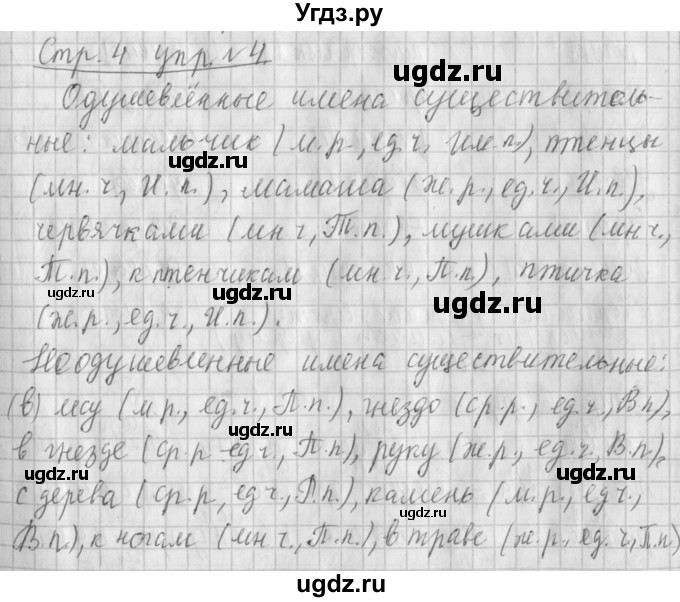 Угдз.ру
Стр. 4 упр. №4
Одушевлённые имена существитель-
ные: мальчик (м.р., ед.ч, Им.п), птенцы
(мн.ч., И.п.), мамаша (ж.р., ед.ч., И.п.),
червячками (мн ч, Т.п.), мушками (мн.ч.,
Т.п.), к птенчикам (мн.ч., П.п), птичка
(ж.р., ед.ч., И.п.).
Неодушевленные имена существительные:
(в) лесу (м.р., ед.ч., П.п.), гнездо (ср.р., ед.ч., В п),
в гнезде (ср.р ед ч, П.п), руку (ж.р., ед.ч., В.п),
с дерева (ср.р, ед ч., Р.п.), камень (м.р., ед ч.,
В.п.), к ногам (мн ч., П.п.), в траве (ж.р., ед.ч, П.п)
угдз.ru
угдз.ru
угдз.ru
угдз.ru
угдз.ru
угдз.ru
угдз.ru
угдз.ru
угдз.ru
угдз.ru